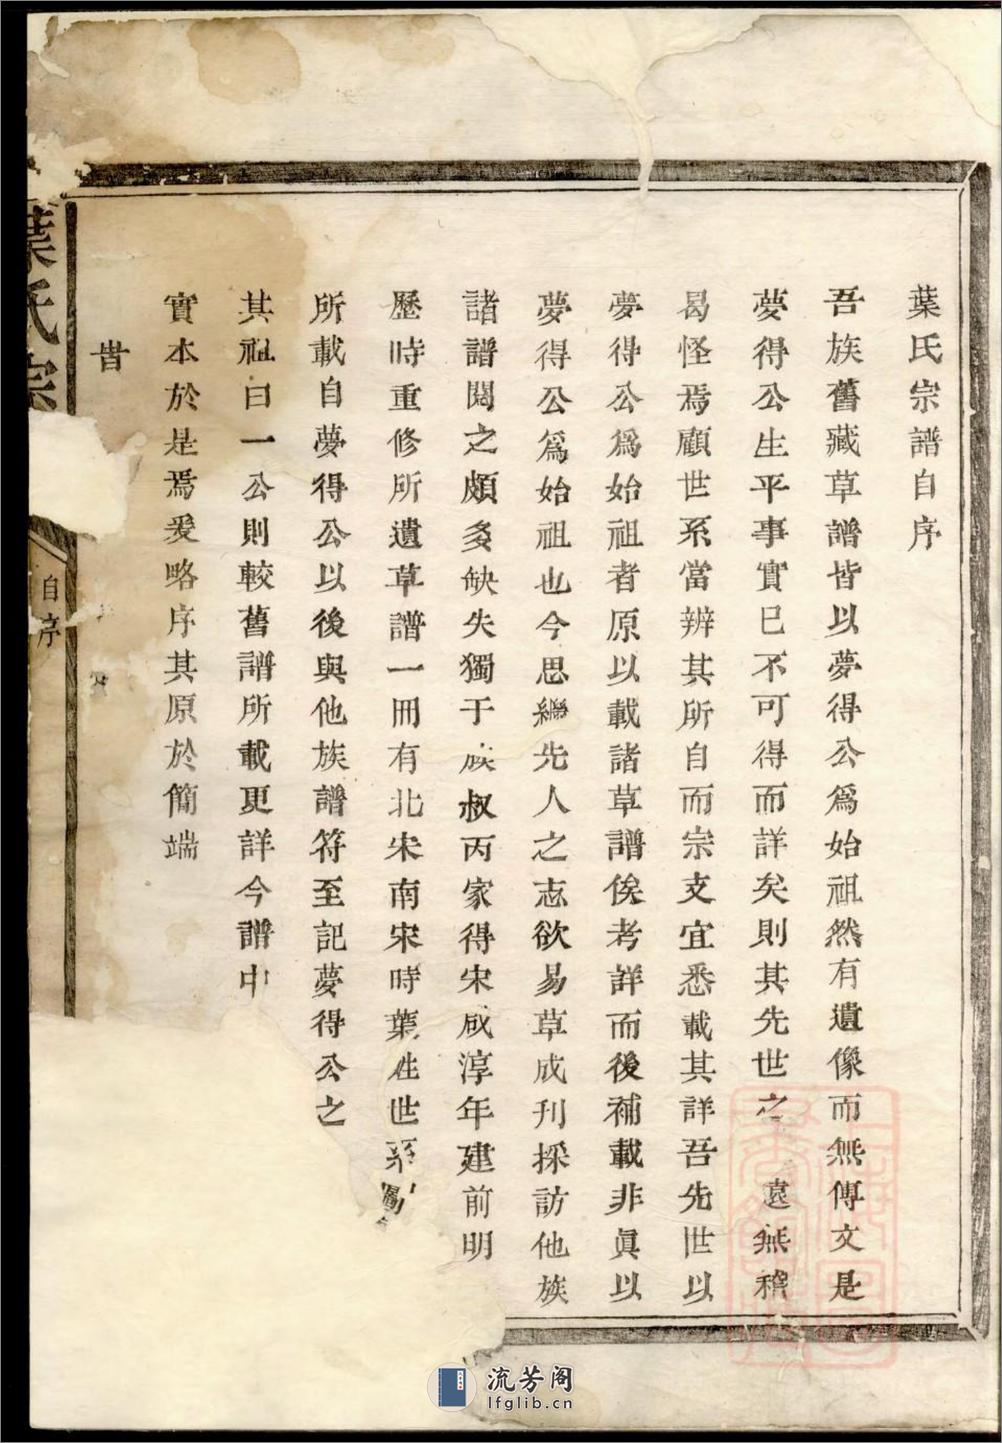 葉氏宗譜自序
吾族舊藏草譜皆以夢得公爲始祖然有遺像而無傳文是
夢得公生平事實已不可得而詳矣則其先世之遠無稽
曷怪焉顧世系當辨其所自而宗支宜悉載其詳吾先世以
夢得公爲始祖者原以載諸草譜俟考詳而後補載非眞以
夢得公爲始祖也今思繼先人之志欲易草成刋採訪他族
諸譜閱之頗多缺失獨于族叔丙家得宋咸淳年建前明
歷時重修所遺草譜一冊有北宋南宋時葉姓世系圖
所載自夢得公以後與他族譜符至記夢得公之
其祖曰一公則較舊譜所載更詳今譜中
實本於是焉爰略序其原於簡端
旹
葉氏宗
自序
流芳阁
lfglib.cn